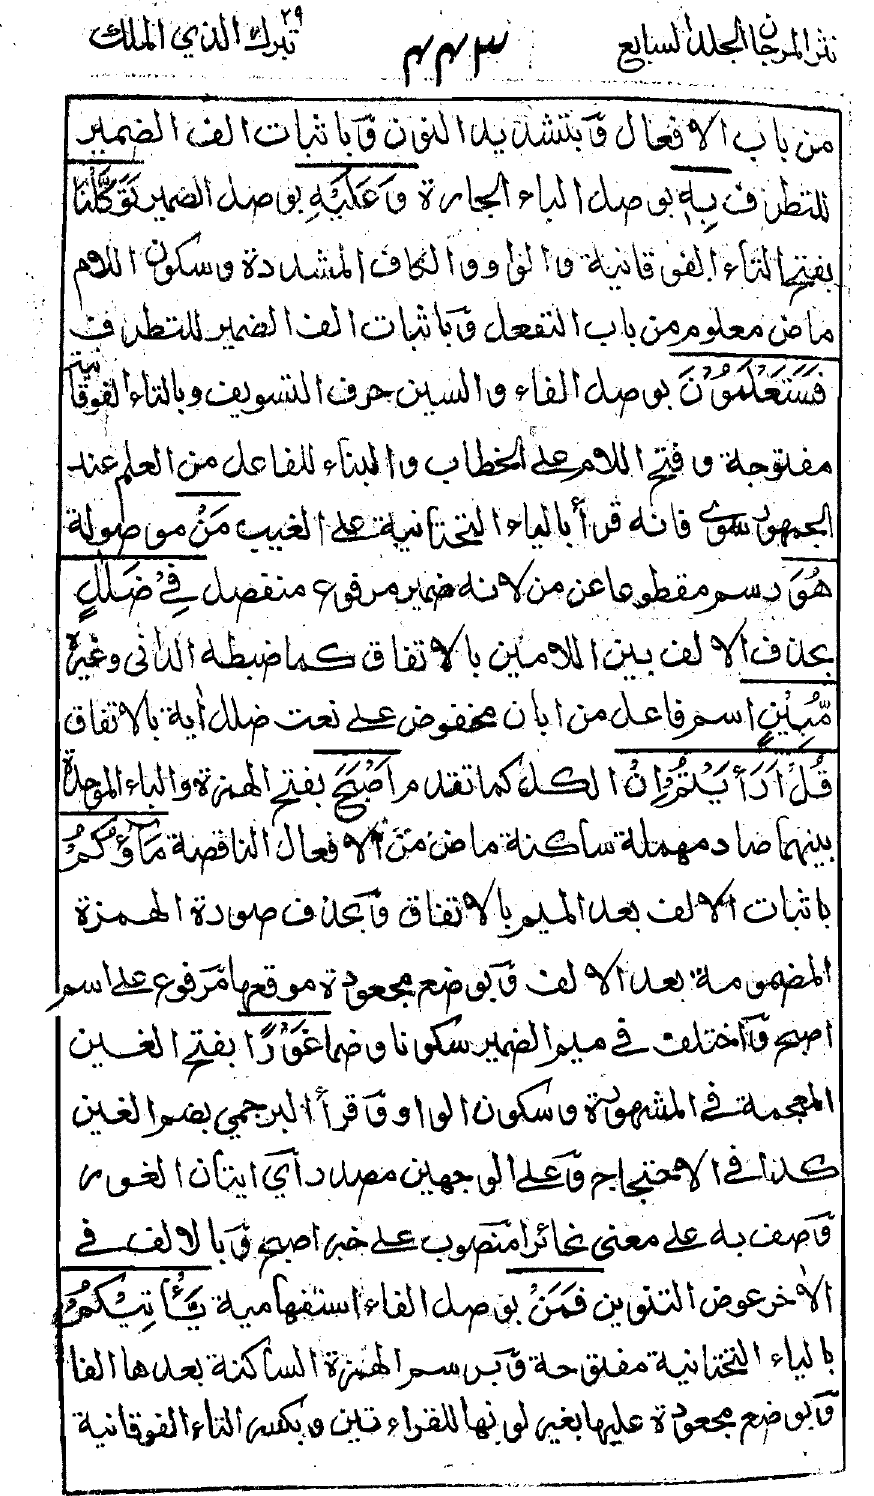 نثر المرجان الجلد السابع
٤٤٣
تبرك الذي الملك ٢٩
من باب الافعال وَبتشديد النون وَباثبات الف الضمير
للتطرف بِهٖ بوصل الباء الجارة وَعَلَيْهِ بوصل الضمير تَوَكَّلْنَا
بفتح التاء الفوقانية والواو والكاف المشددة وسكون اللام
ماض معلوم من باب التفعل وَباثبات الف الضمير للتطرف
فَسَتَعْلَمُوْنَ بوصل الفاء والسين حرف التسويف وبالتاء الفوقانية
مفتوحة وفتح اللام على الخطاب والبناء للفاعل من العلم عند
الجمهور سوى فانه قرأ بالياء التحتانية على الغيب مَنْ موصولة
هُوَ رسم مقطوعا عن من لانه ضمير مرفوع منفصل فِيْ ضَلٰلٍ
بحذف الالف بين اللامين بالاتفاق كما ضبطه الداني وغيره
مُّبِيْنٍ اسم فاعل من ابان مخفوض على نعت ضلل أية بالاتفاق
قُلْ اَرَءَيْتُمْ اِنْ الكل كما تقدم اَصْبَحَ بفتح الهمزة والباء الموحدة
بينهما صاد مهملة ساكنة ماض من الافعال الناقصة مَآؤُكُمْ
باثبات الالف بعد الميم بالاتفاق وَبحذف صورة الهمزة
المضمومة بعد الالف وَبوضع مجعودة موقعها مرفوع على اسم
اصبح وَاختلف في ميم الضمير سكونا وضما غَوْرًا بفتح الغين
المعجمة في المشهورة وسكون الواو وَقرأ البرجمي بضم الغين
كذا في الاحتجاج وَعلى الوجهين مصدر أي ايتان الغور
وَصف به على معنى غائرا منصوب على خبر اصبح وَبالالف في
الأخر عوض التنوين فَمَنْ بوصل الفاء استفهامية يَّأْتِيْكُمْ
بالياء التحتانية مفتوحة وَبرسم الهمزة الساكنة بعدها الفا
وَبوضع مجعودة عليها بغير لونها للقراءتين وبكسر التاء الفوقانية